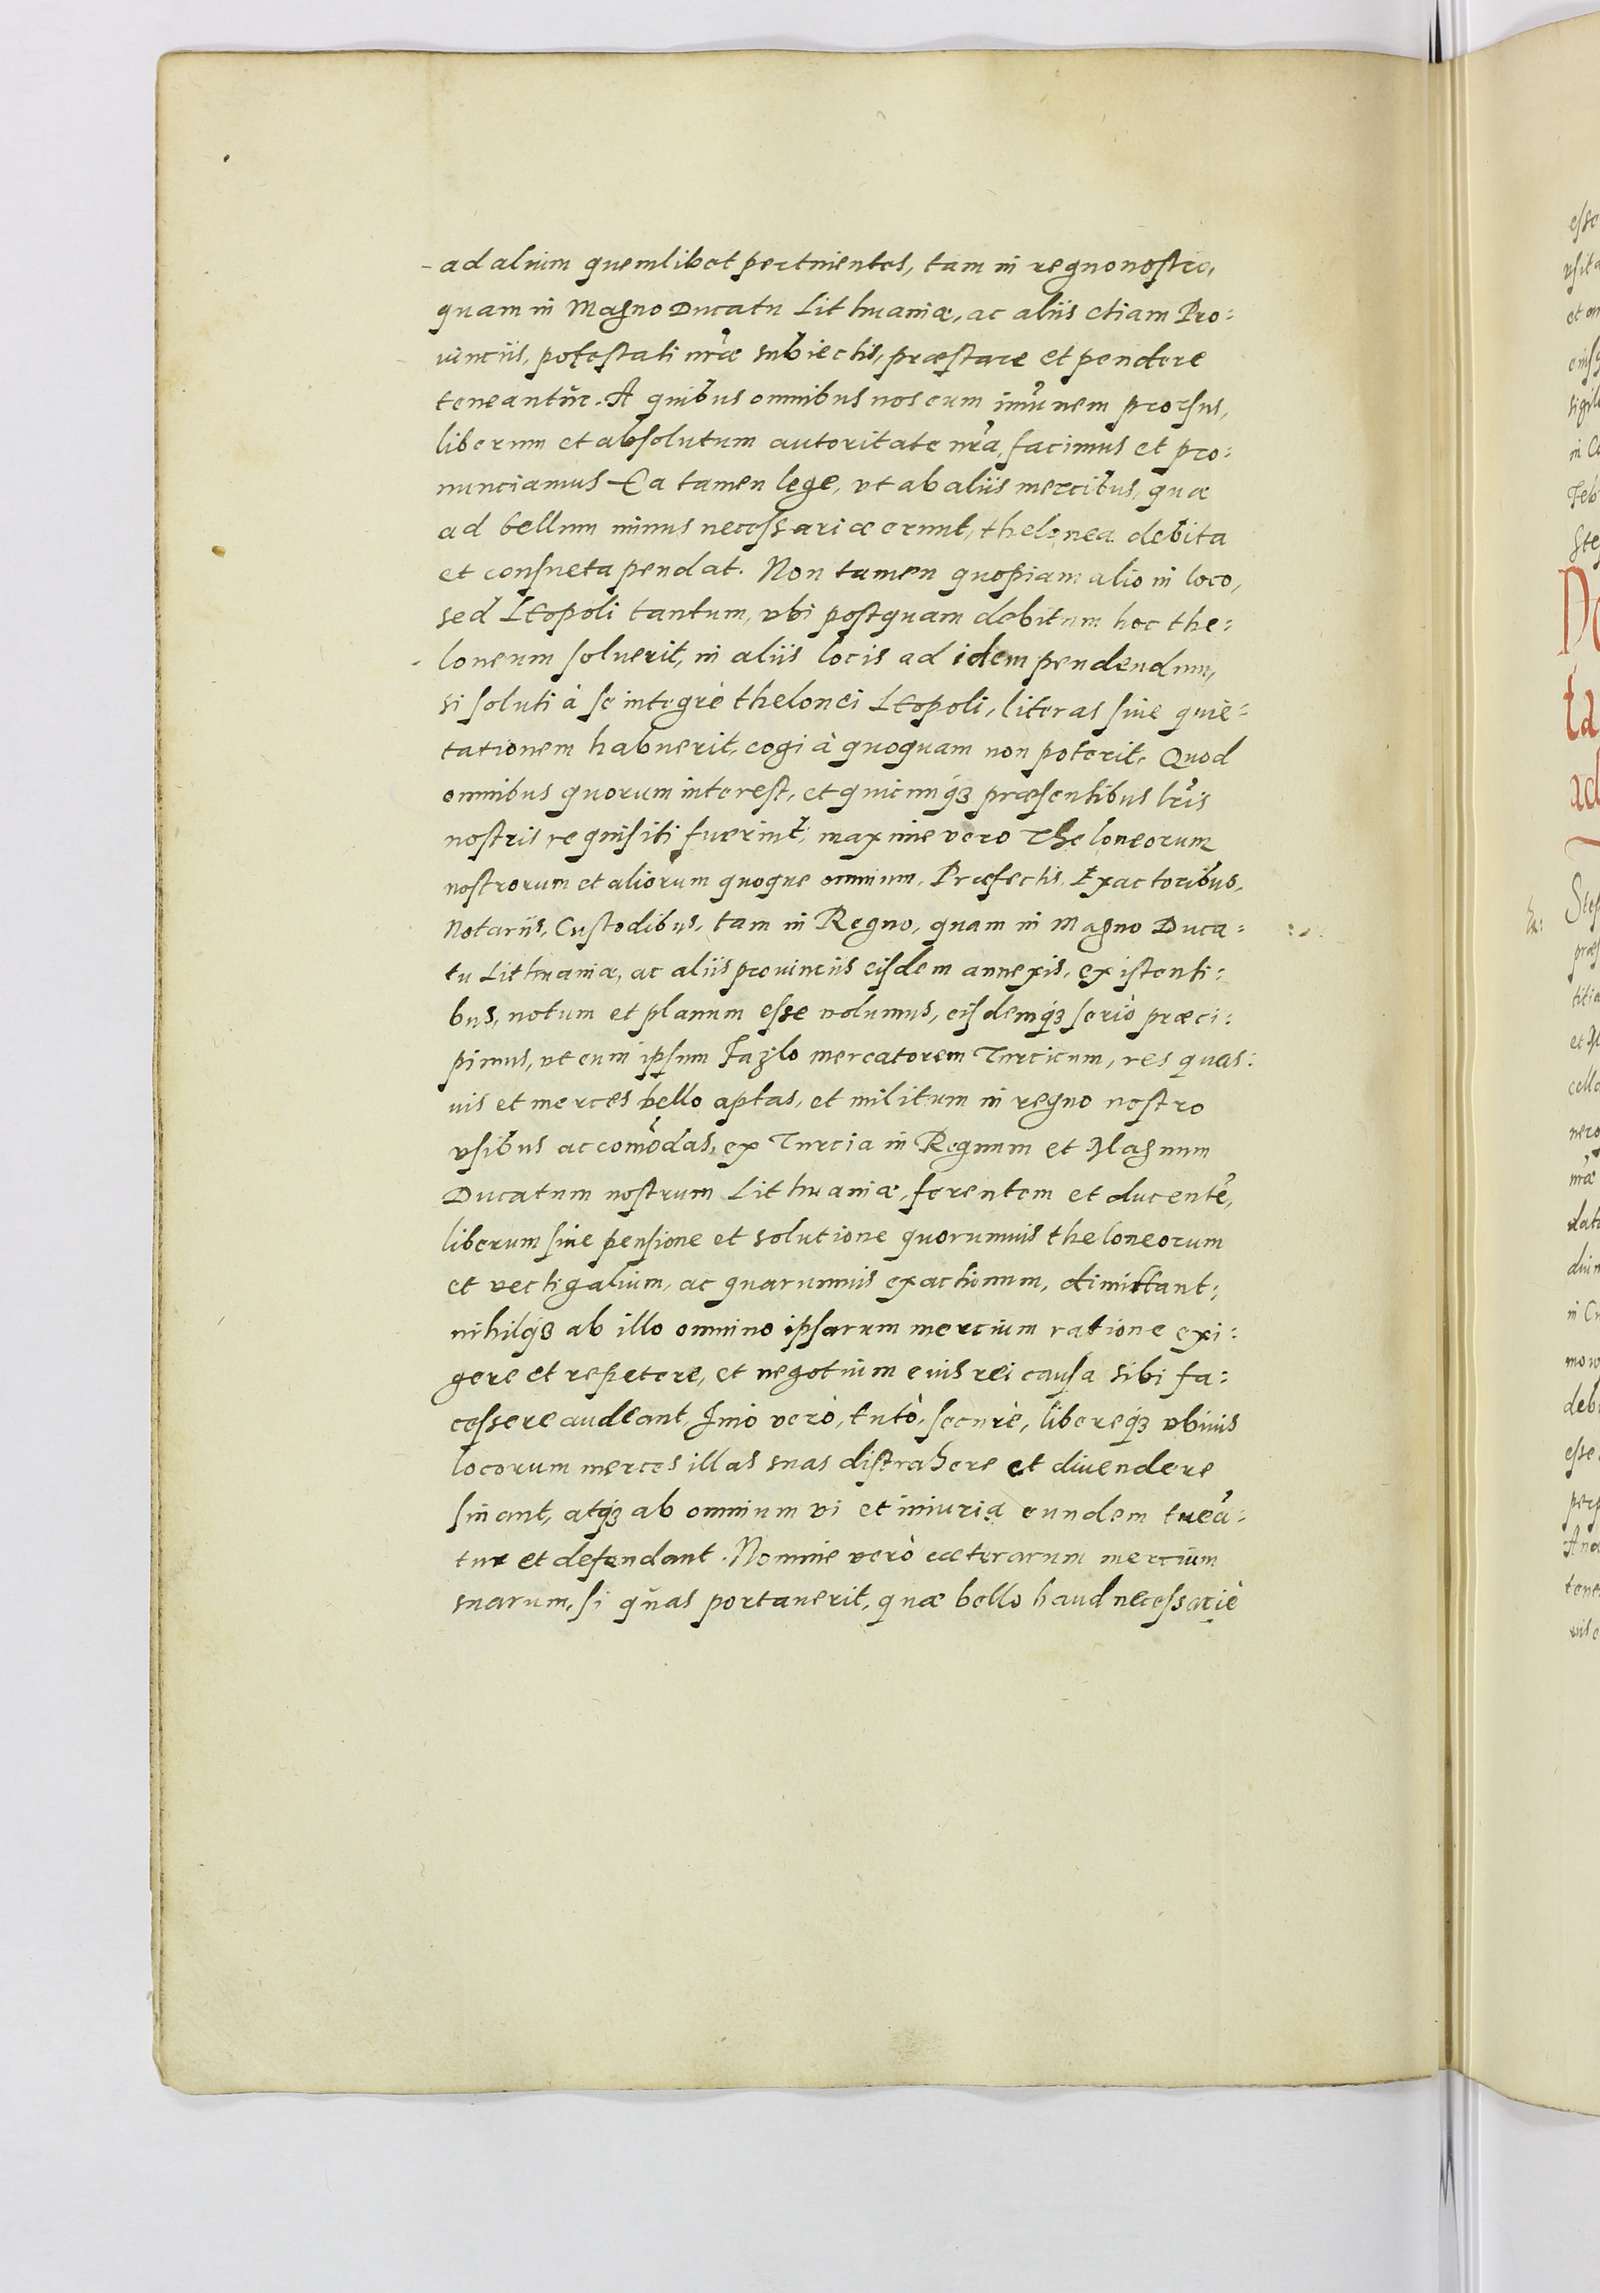 ad alium quemlibet pertinentes, tam in regno nostro,
quam in Magno Ducatu Lithuaniæ, ac aliis etiam Pro:
uinciis, potestati nr̃æ subiectis, præstare et pendere
teneantur. A quibus omnibus nos eum im̃unem prorsus,
liberum et absolutum autoritate nr̃a, facimus et pro:
nunciamus Ea tamen lege, vt ab aliis mercibus, quæ
ad bellum minus necessariæ erunt, thelonea debita
et consueta pendat. Non tamen quopiam alio in loco,
sed Leopoli tantum, vbi postquam debitum hoc the:
loneum soluerit, in aliis locis ad idem pendendum,
si soluti à se integrè thelonei Leopoli, literas siue quie:
tationem habuerit, cogi à quoquam non poterit. Quod
omnibus quorum interest, et quicunq́ꝫ præsentibus lr̃is
nostris requisiti fuerint, maxime vero Theloneorum
nostrorum et aliorum quoque omnium, Præfectis, Exactoribus,
Notariis, Custodibus, tam in Regno, quam in Magno Duca:
tu Lithuaniæ, ac aliis prouinciis eisdem annexis, existenti:
bus, notum et planum esse volumus, eisdemq́ꝫ seriò præci:
pimus, vt eum ipsum Fazlo mercatorem Turcicum, res quas:
uis et merces bello aptas, et militum in regno nostro
vsibus accom̃odas, ex Turcia in Regnum et Magnum
Ducatum nostrum Lithuaniæ, ferentem et ducentẽ,
liberum sine pensione et solutione quorumuis theloneorum
et vectigalium, ac quarumuis exactionum, dimittant;
nihilq́ꝫ ab illo omnino ipsarum mercium ratione exi:
gere et repetere, et negotium eius rei causa sibi fa:
cessere audeant. Imò verò, tutò, securè, libereq́ꝫ vbiuis
locorum merces illas suas distrahere et diuendere
sinant, atq́ꝫ ab omnium vi et iniuria eundem tueã:
tur et defendant. Nomine verò cæterarum mercium
suarum, si quas portauerit, quæ bello haud necessariè